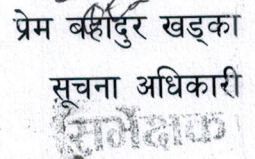 प्रेम बहादुर खड्का
सूचना अधिकारी